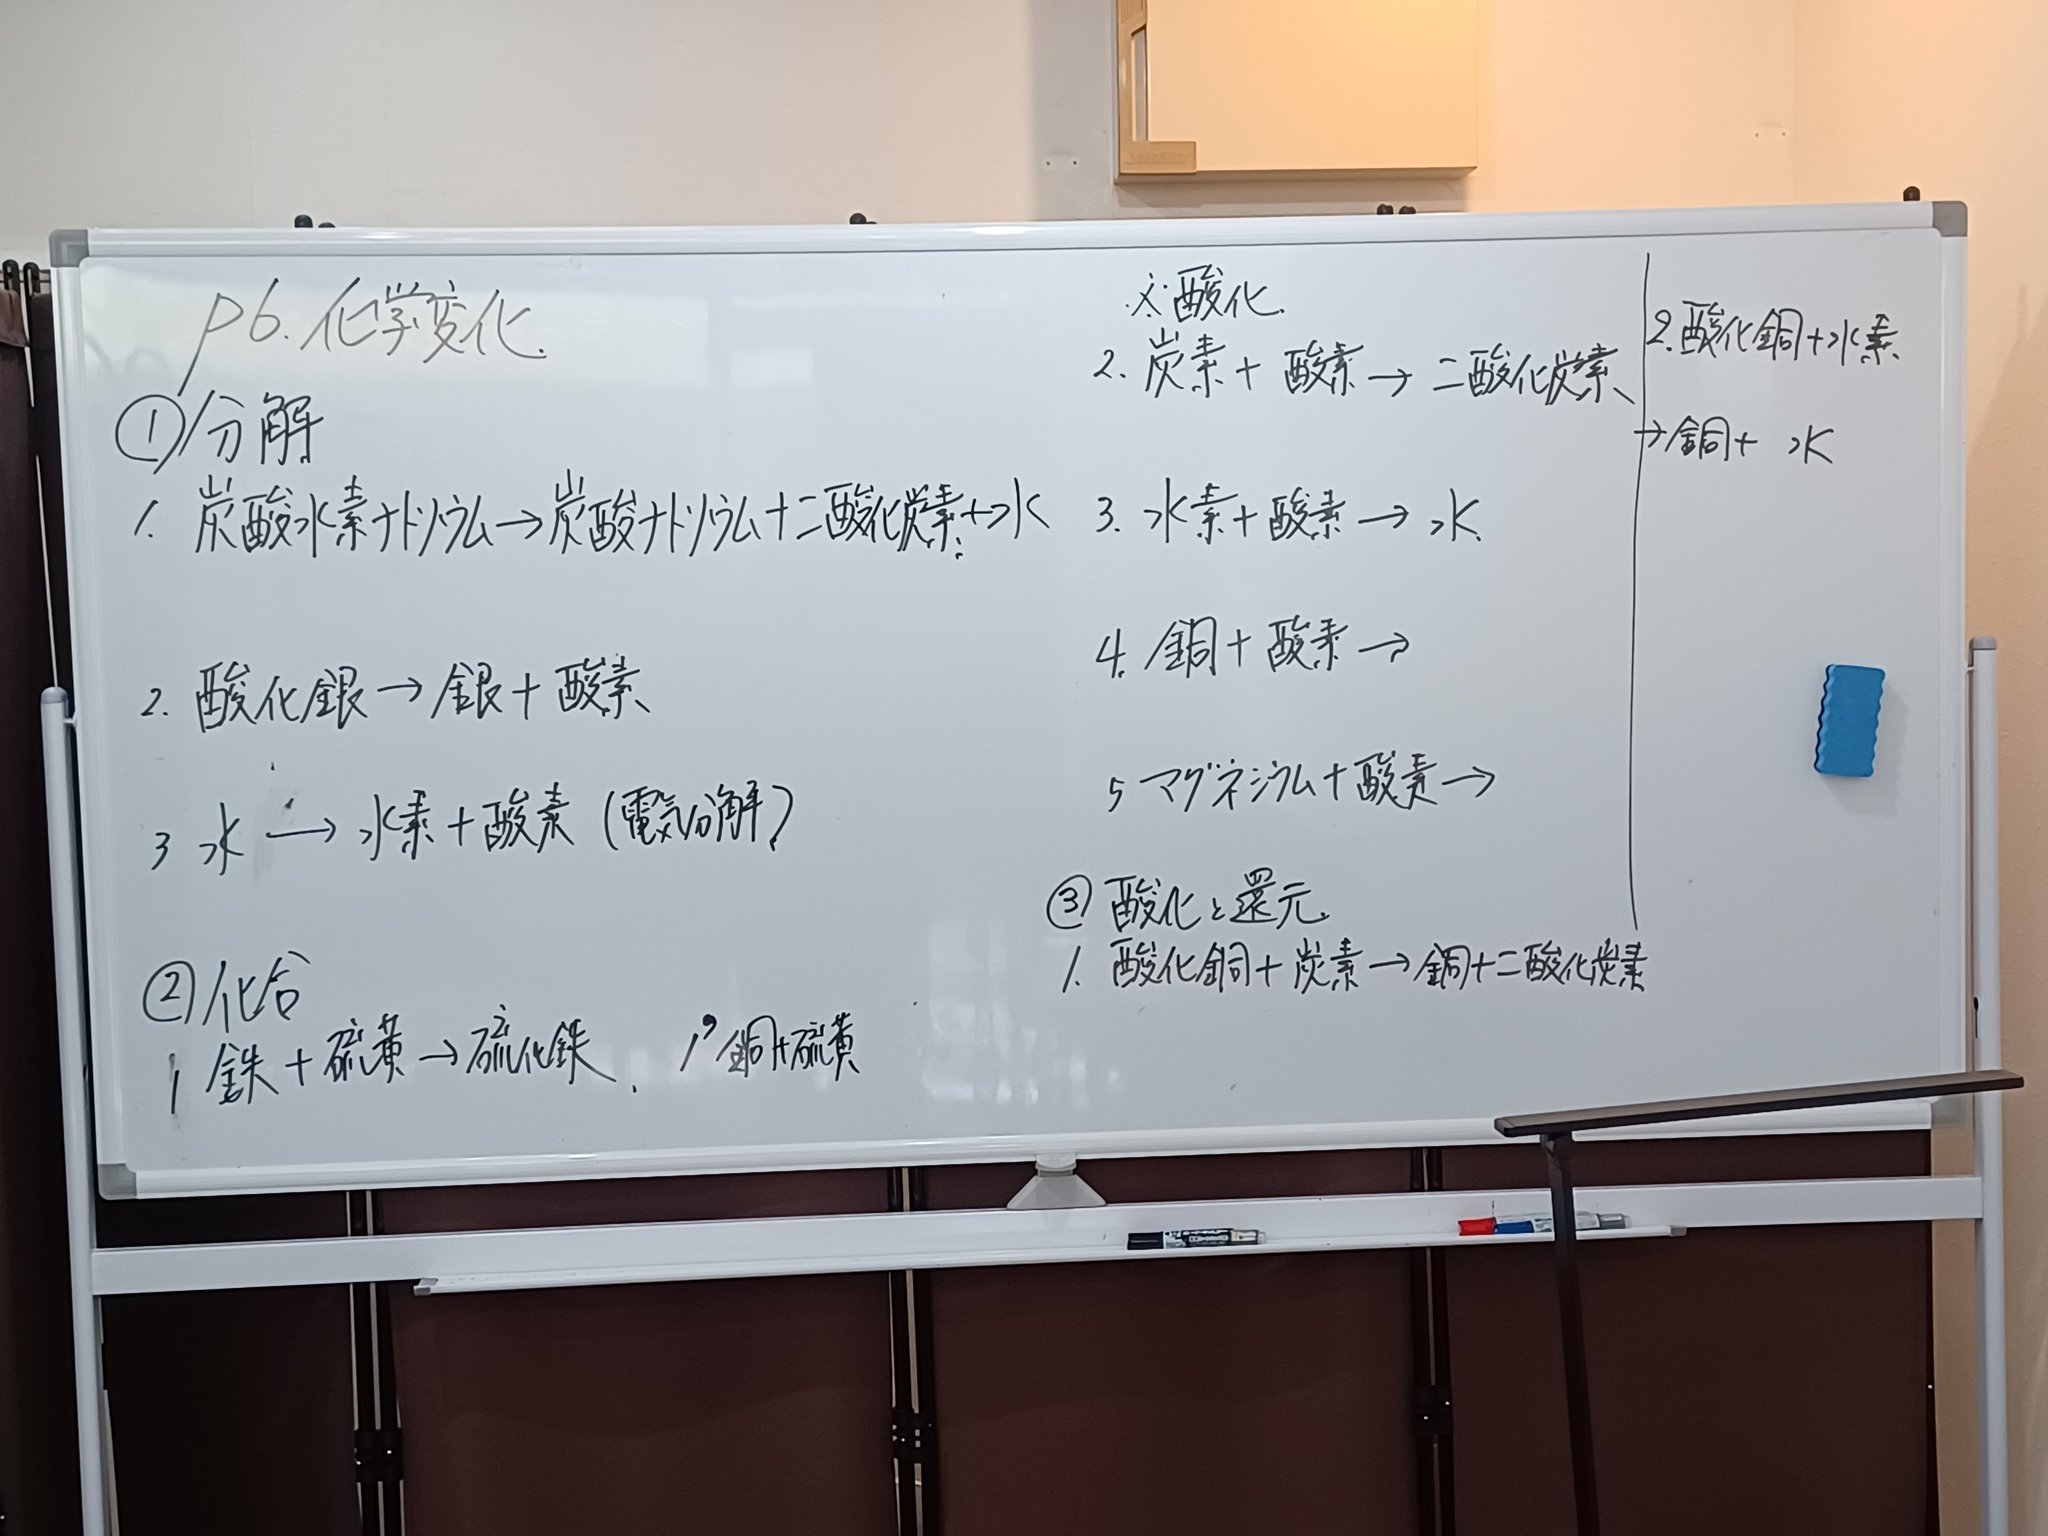 p6. 化学変化.
① 分解
1. 炭酸水素ナトリウム→炭酸ナトリウム+二酸化炭素+水
2. 酸化銀→銀+酸素
3 水→水素+酸素(電気分解)
② 化合
1 鉄+硫黄→硫化鉄. 1' 銅+硫黄
※酸化.
2. 炭素+酸素→二酸化炭素
3. 水素+酸素→水.
4. 銅+酸素→
5 マグネシウム+酸素→
③ 酸化と還元.
1. 酸化銅+炭素→銅+二酸化炭素
2. 酸化銅+水素
→銅+ 水